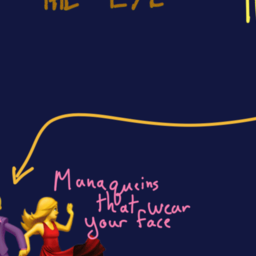 THE EYE
Manaqueins
that wear
your face